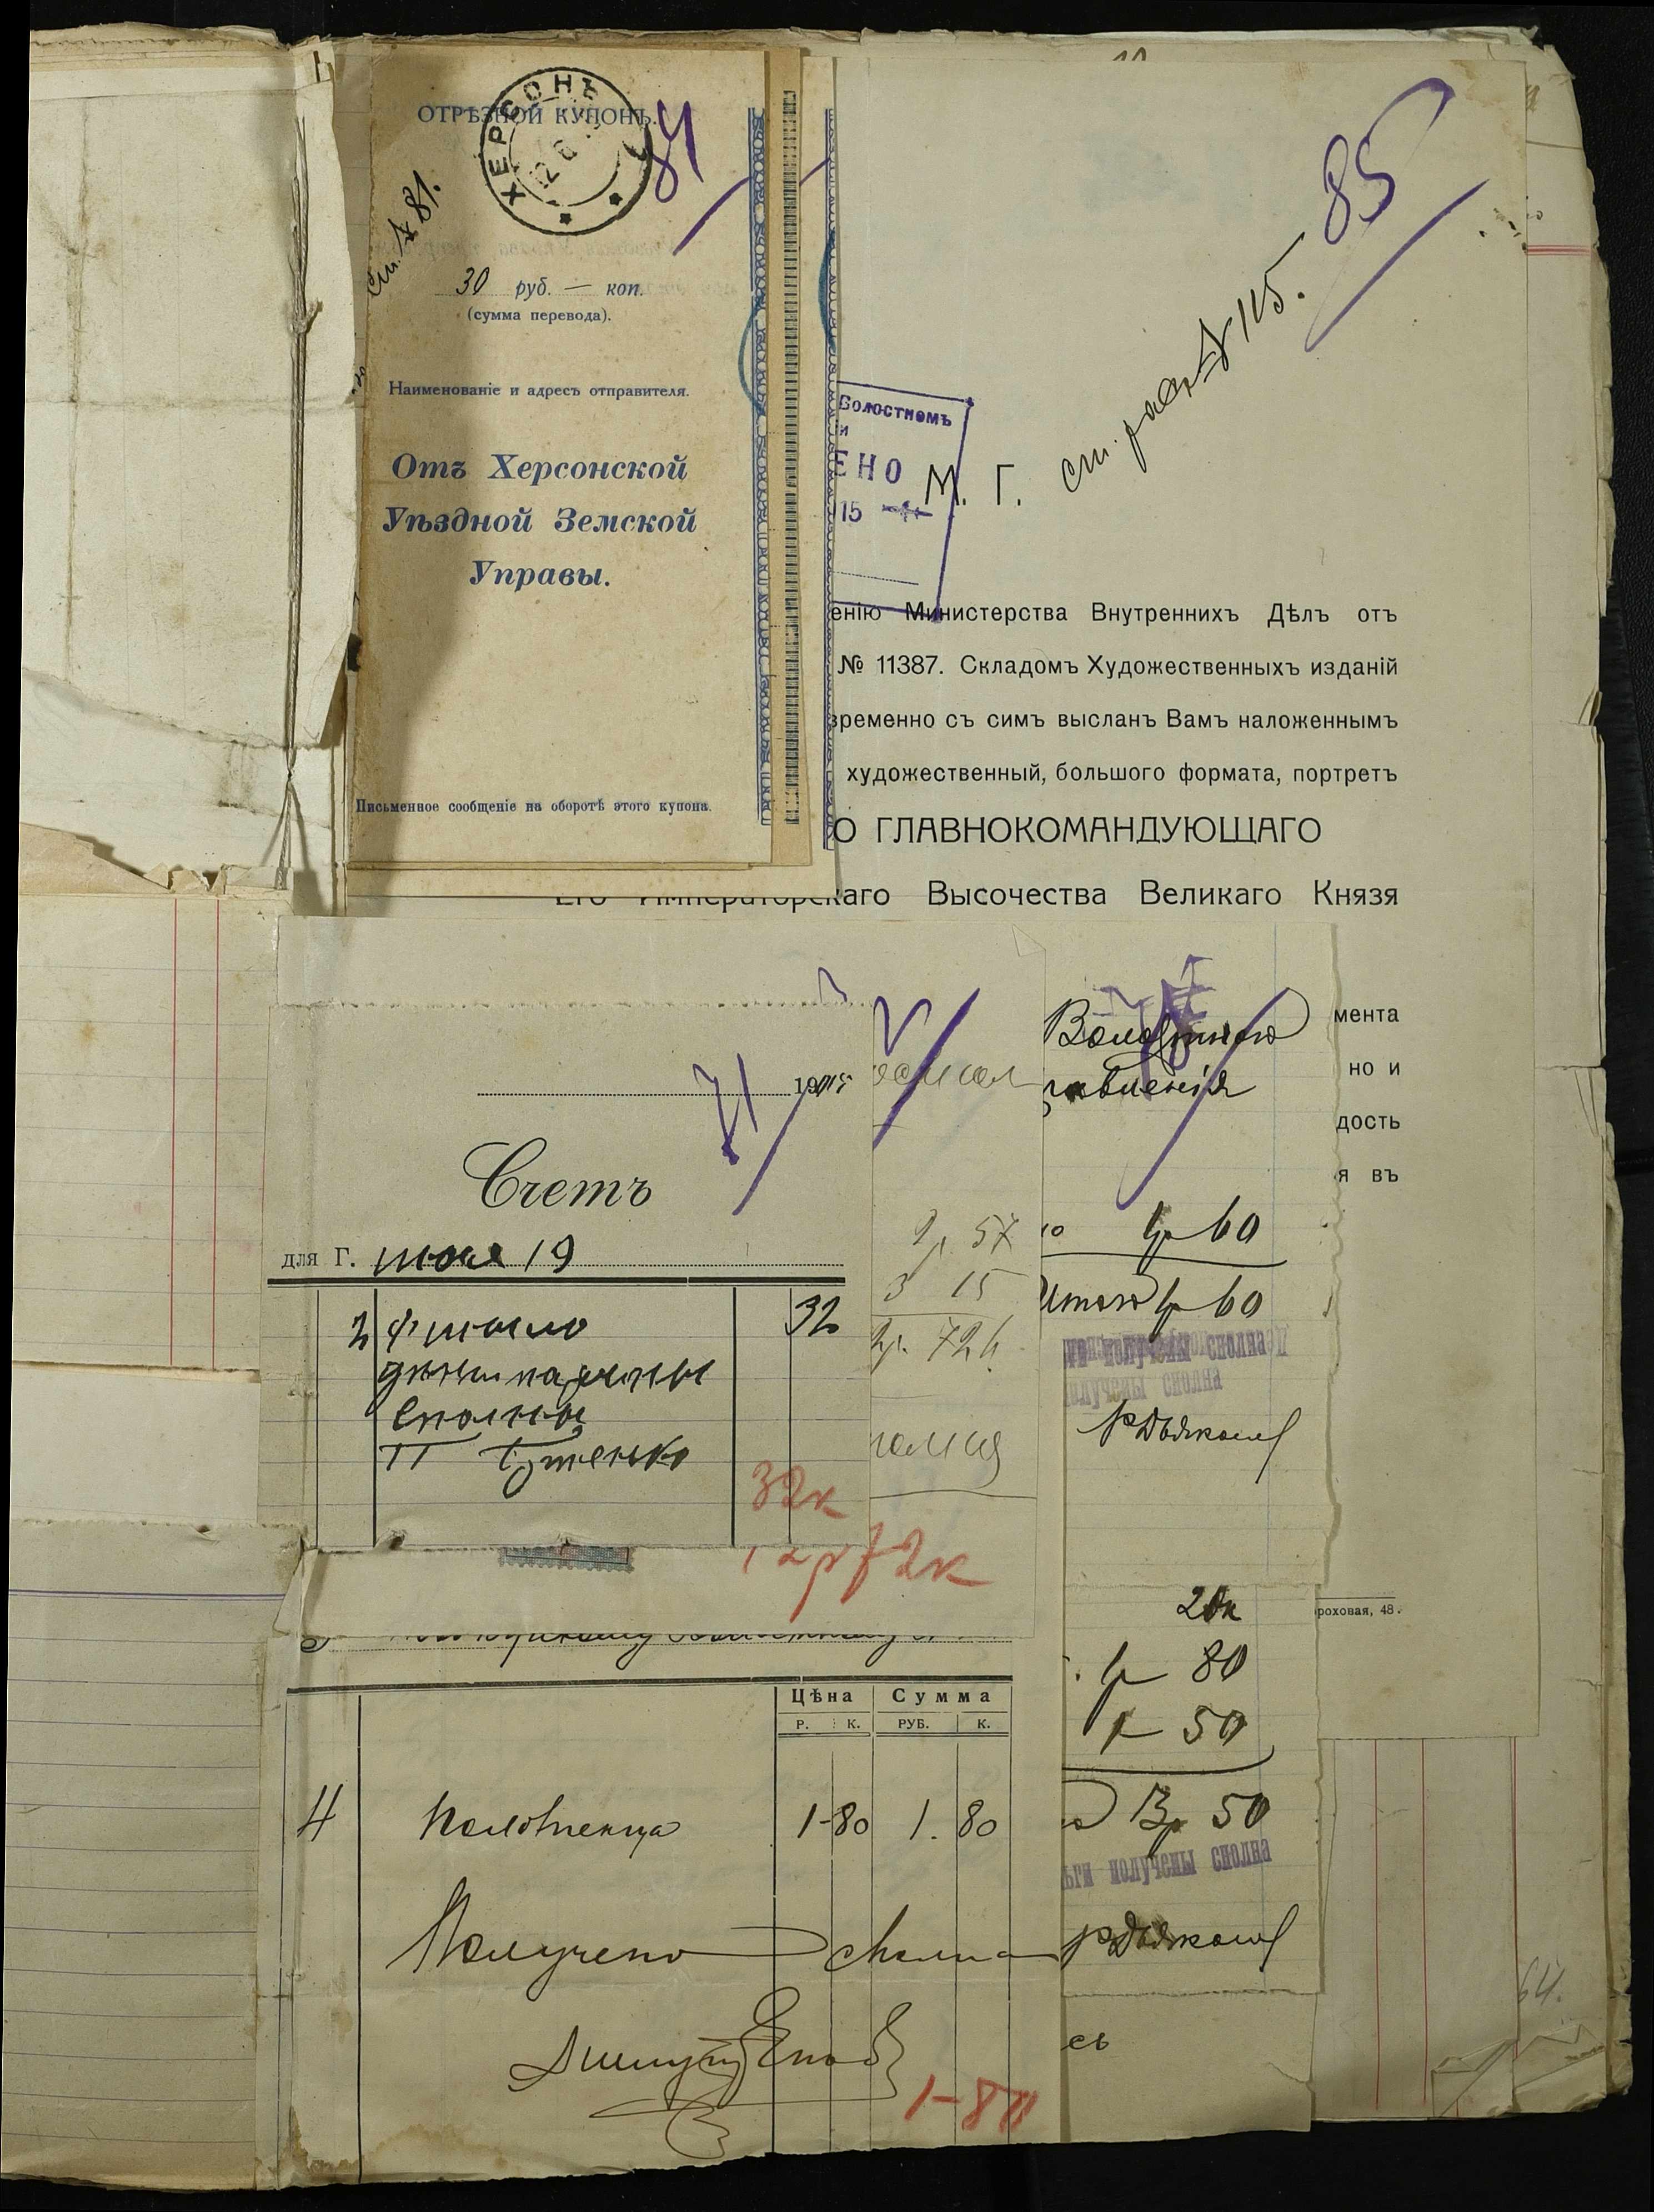 ОТРѢЗНОЙ КУПОНЪ.
ХЕРСОНЪ
84
См. № 81.
30 руб. — коп.
(сумма перевода).
Наименованіе и адресъ отправителя.
Отъ Херсонской
Уѣздной Земской
Управы.
Письменное сообщеніе на оборотѣ этого купона.
85
ст. № 115.
Волостномъ
ЕНО
15
М. Г.
енію Министерства Внутреннихъ Дѣлъ отъ
№ 11387. Складомъ Художественныхъ изданій
временно съ симъ высланъ Вамъ наложеннымъ
художественный, большого формата, портретъ
О ГЛАВНОКОМАНДУЮЩАГО
Его Императорскаго Высочества Великаго Князя
мента
но и
дость
я въ
роховая, 48.
71
1915
Счетъ
для Г. июля 19
2 фитыло 32
деньги получены
сполна
32к
2р 57
3 15
2р. 72к
12р 72к
Волостного
правленія
1р 60
Итого 1р 60
ги получены сполна
получены сполна
20к
1р 80
1 50
3р 50
ьги получены сполна
сь
64.
Цѣна Сумма
Р. К. РУБ. К.
4 Полотенца 1-80 1. 80
Получено сполна
1-80